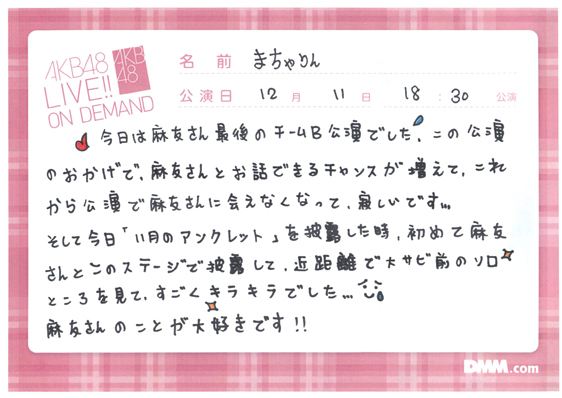 AKB48
LIVE!!
ON DEMAND
AKB
48
名前 まちゃりん
公演日 12月 11日 18:30 公演
今日は麻友さん最後のチームB公演でした。この公演
のおかげで、麻友さんとお話できるチャンスが増えて、これ
から公演で麻友さんに会えなくなって、寂しいです...
そして今日「11月のアンクレット」を披露した時、初めて麻友
さんとこのステージで披露して、近距離で大サビ前のソロ
ところを見て、すごくキラキラでした...
麻友さんのことが大好きです!!
DMM.com